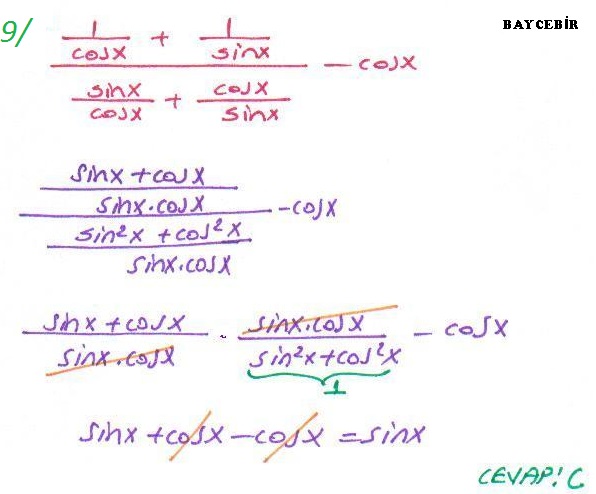 9/ BAYCEBİR
1/cosx + 1/sinx
─────────────── - cosx
sinx/cosx + cosx/sinx
sinx + cosx
sinx.cosx
─────────────── - cosx
sin²x + cos²x
sinx.cosx
(sinx + cosx)/(sinx.cosx) . (sinx.cosx)/(sin²x + cos²x) - cosx
1
sinx + cosx - cosx = sinx
CEVAP! C